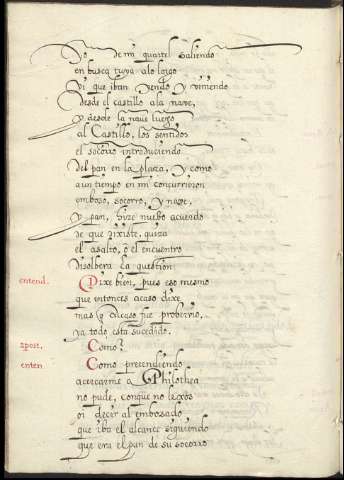 Yo de mi quartel saliendo
en busca tuya alo lexos
Vi que iban yendo y viniendo
desde el castillo ala nave,
y desde la nave luego
al Castillo, los sentidos
el socorro introduciendo
Del pan en la plaza, y como
aun tiempo en mi concurrieron
emboso, socorro, y nave,
y pan, hize nuebo acuerdo
de que
el asalto, o el encuentro
disolbera la question
entend. Dixe bien, pues eso mesmo
que entonces acaso dixe
mas q̃ acaso fue proberbio,
ya todo está sucedido.
apost. Como?
enten. Como pretendiendo
acercarme a Philothea
no pude, conque lexos
oi decir al embosado
que iba el alcance siguiendo
que era el pan de su socorro